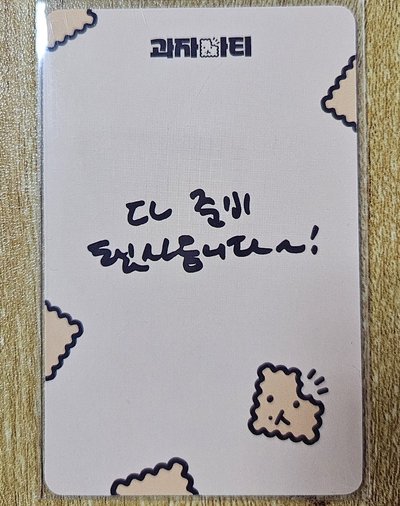 과자파티
다 준비
됐사옵니다~!